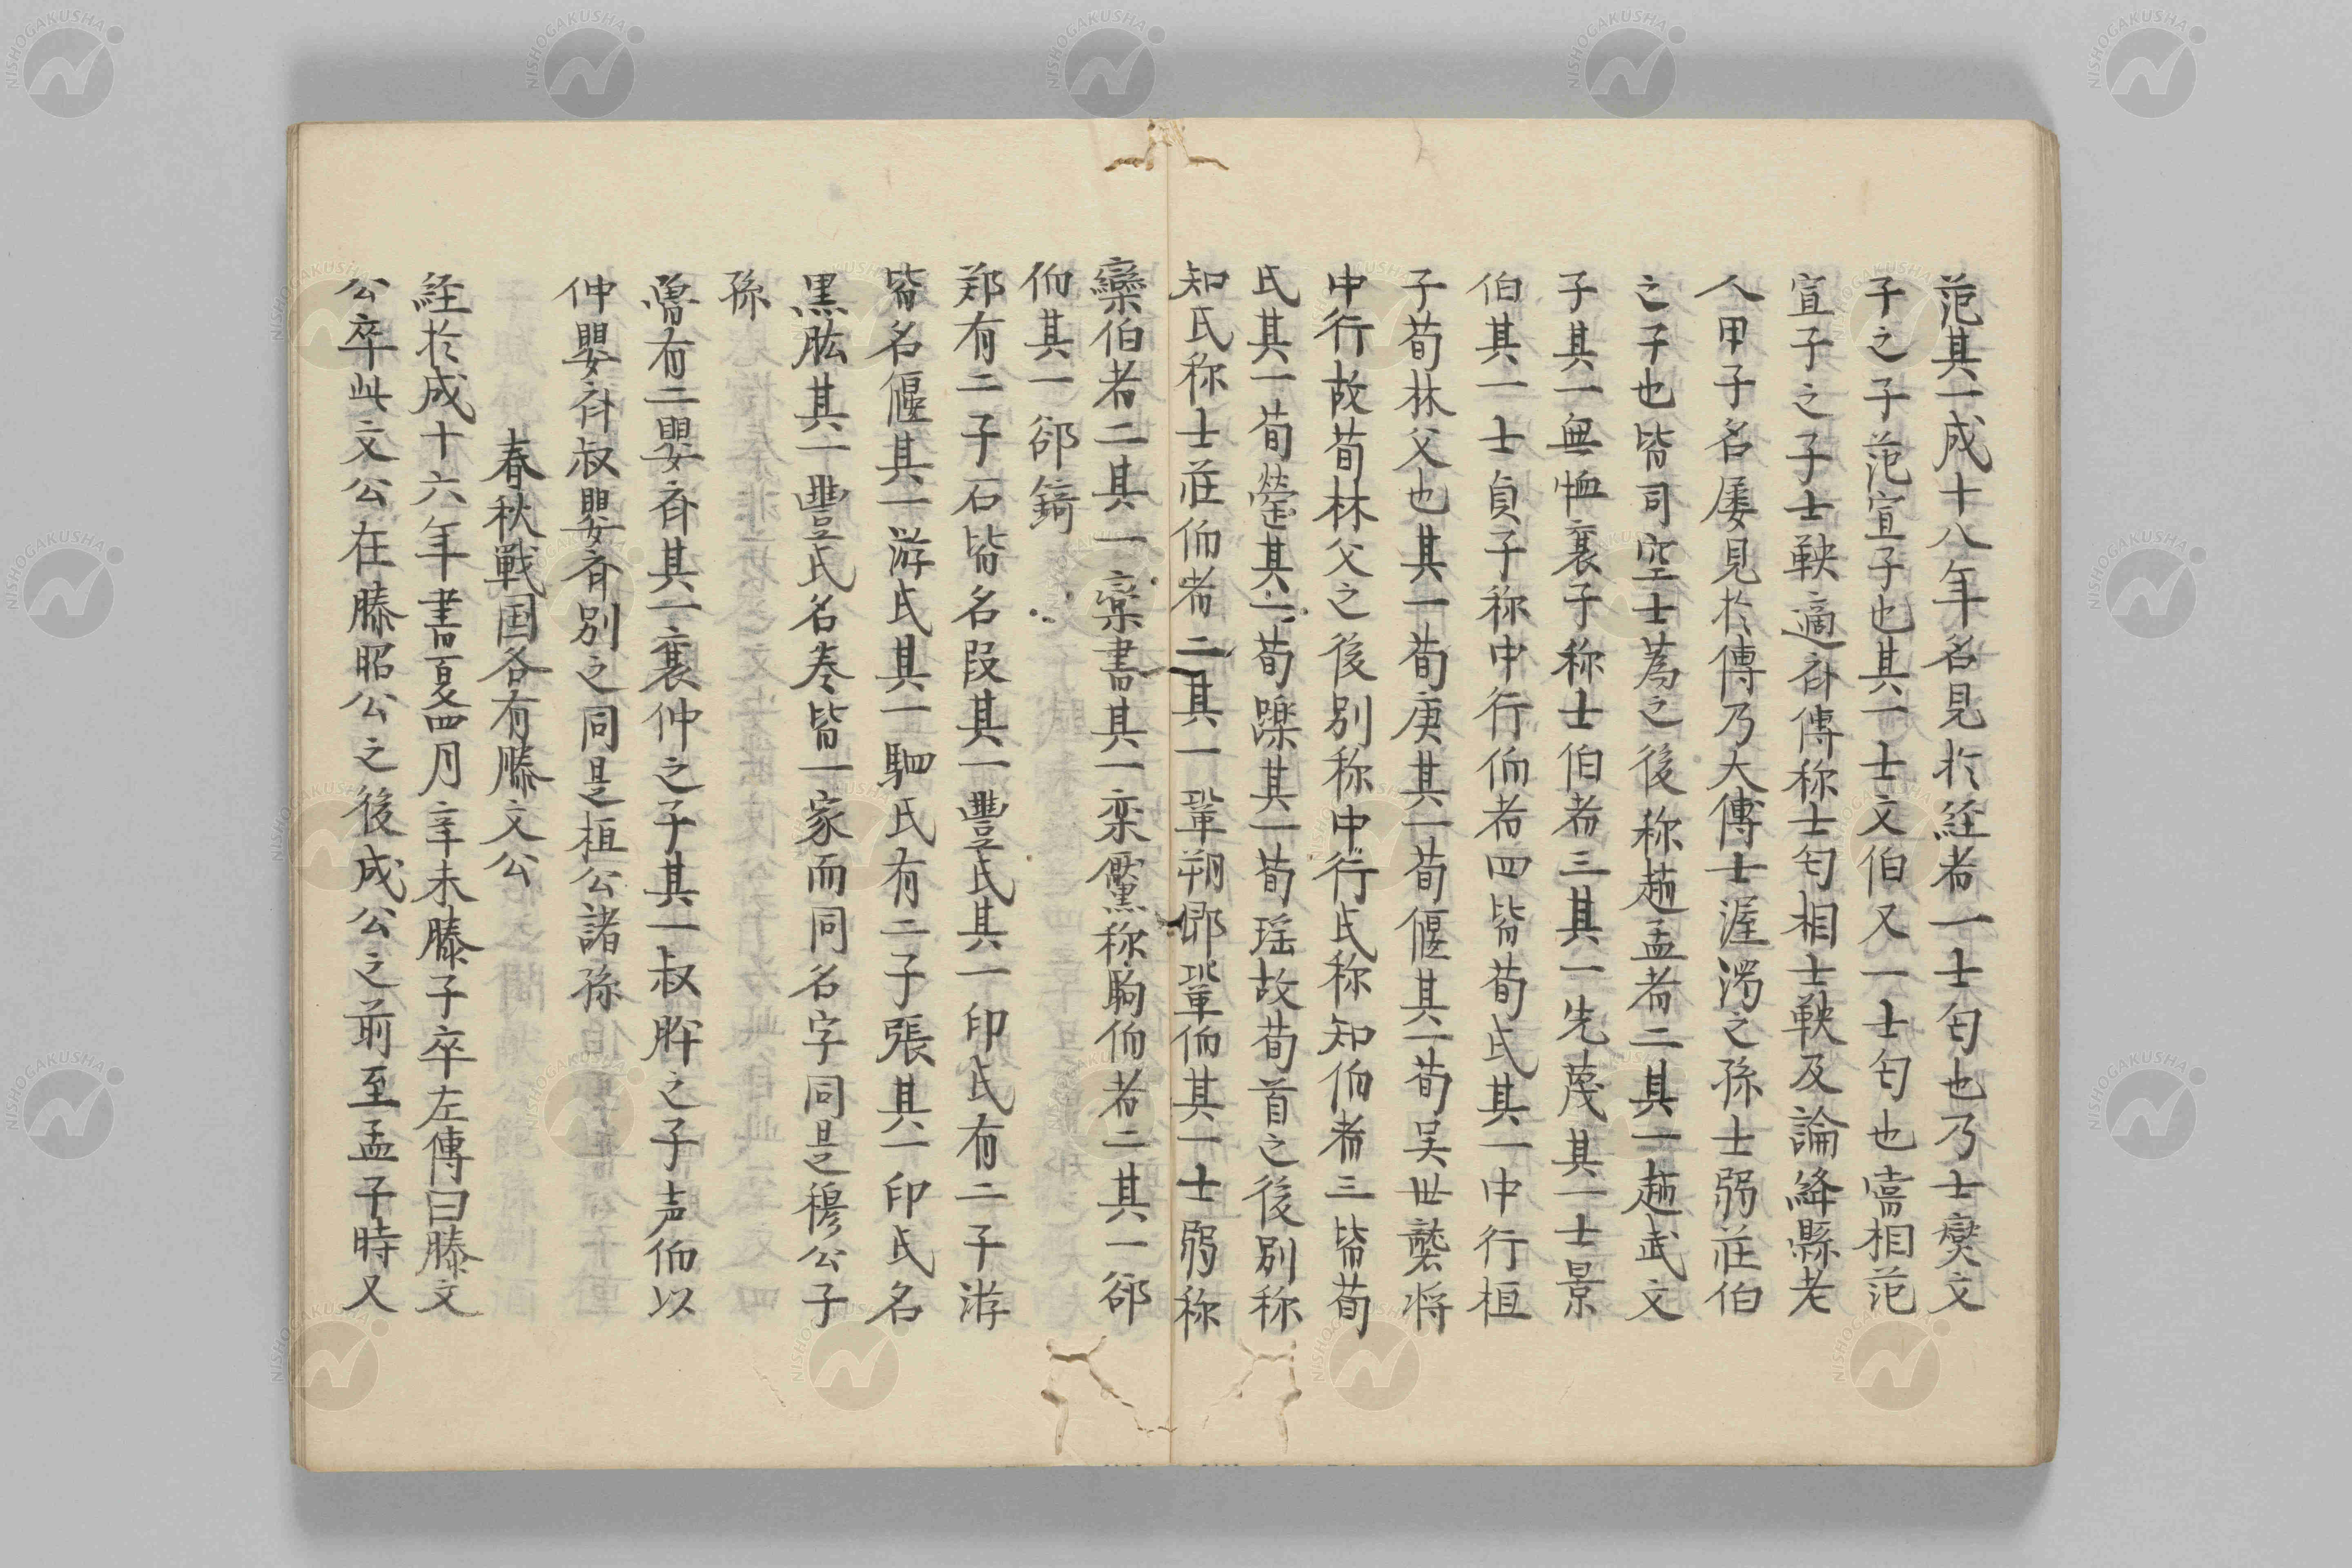 范其一成十八年名見於経者一士匄也乃士爕文
子之子范宣子也其一士文伯又一士匄也嘗相范
宣子之子士鞅適斉傳称士匄相士鞅及論絳縣老
人甲子名屡見於傳乃大傅士渥濁之孫士弱莊伯
之子也皆司空士蔿之後称趙孟者二其一趙武文
子其一無恤襄子称士伯者三其一先蔑其一士景
伯其一士貞子称中行伯者四皆荀氏其一中行桓
子荀林父也其一荀庚其一荀偃其一荀吴世襲将
中行故荀林父之後別称中行氏称知伯者三皆荀
氏其一荀罃其一荀躒其一荀瑶故荀首之後別称
知氏称士莊伯者二其一鞏朔即鞏伯其一士弱称
欒伯者二其一栾書其一栾黶称駒伯者二其一郤
伯其一郤錡
郑有二子石皆名段其一豐氏其一印氏有二子游
皆名偃其一游氏其一駟氏有二子張其一印氏名
黒肱其一豐氏名巻皆一家而同名字同是穆公子
孫
魯有二嬰斉其一襄仲之子其一叔肸之子声伯以
仲嬰斉叔嬰斉別之同是桓公諸孫
春秋戰国各有滕文公
経於成十六年書夏四月辛未滕子卒左傳曰滕文
公卒此文公在滕昭公之後成公之前至孟子時又